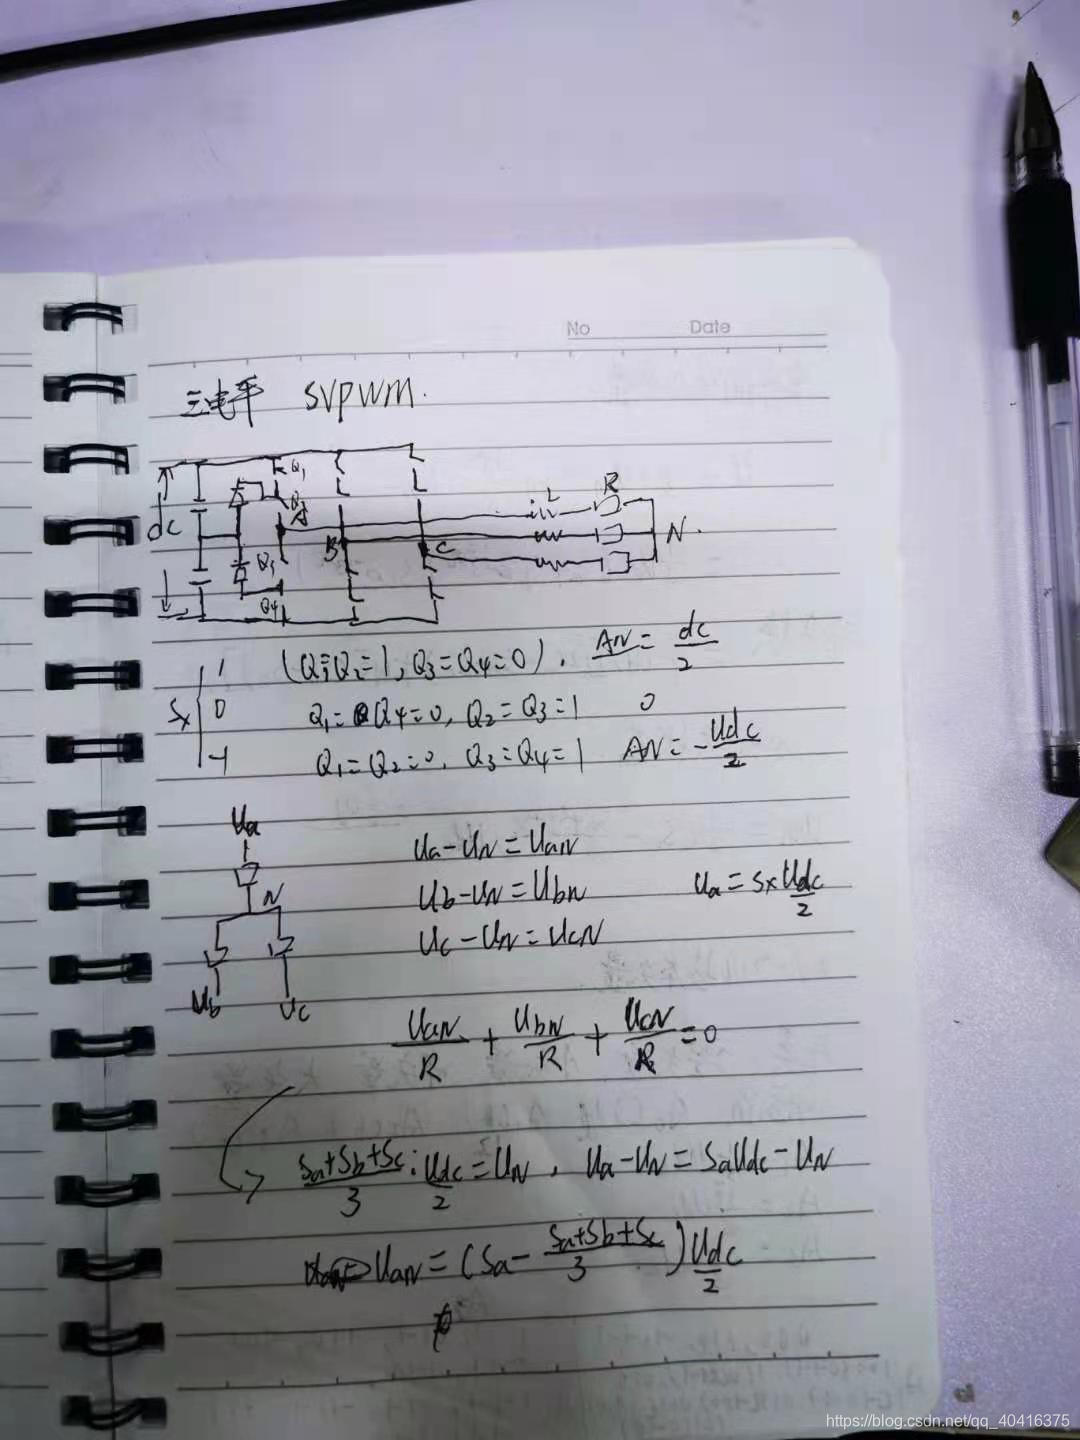 No Date
三电平 SVPWM.
Q1
Q2
dc A L R
B C N.
Q3
Q4
Sx 1 (Q1=Q2=1, Q3=Q4=0). AN = dc/2
0 Q1=Q4=0, Q2=Q3=1 0
-1 Q1=Q2=0. Q3=Q4=1 AN = -Udc/2
Ua
N
Ub Uc
Ua-UN=UaN
Ub-UN=UbN Ua = Sx Udc/2
Uc-UN=UcN
UaN/R + UbN/R + UcN/R =0
(Sa+Sb+Sc)/3 · Udc/2 = UN, Ua-UN = SaUdc-UN
UaN = (Sa - (Sa+Sb+Sc)/3) Udc/2
https://blog.csdn.net/qq_40416375